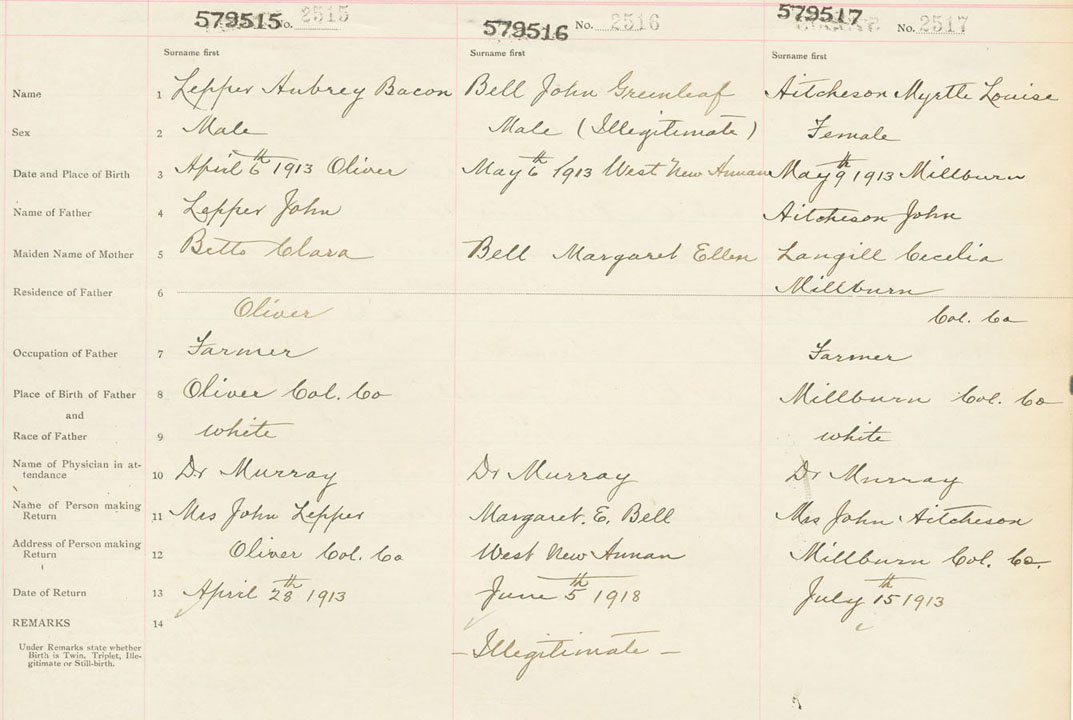 579515 No. 2515
579516 No. 2516
579517 No. 2517
Surname first Surname first Surname first
Name 1 Lepper Aubrey Bacon Bell John Greenleaf Aitcheson Myrtle Louise
Sex 2 Male Male (Illegitimate) Female
Date and Place of Birth 3 April 6th 1913 Oliver May 6th 1913 West New Annan May 9th 1913 Millburn
Name of Father 4 Lepper John Aitcheson John
Maiden Name of Mother 5 Betts Clara Bell Margaret Ellen Langill Cecelia
Residence of Father 6 Oliver Millburn
Col. Co
Occupation of Father 7 Farmer Farmer
Place of Birth of Father 8 Oliver Col. Co Millburn Col. Co
and
Race of Father 9 white white
Name of Physician in at-
tendance 10 Dr Murray Dr Murray Dr Murray
Name of Person making
Return 11 Mrs John Lepper Margaret. E. Bell Mrs John Aitcheson
Address of Person making
Return 12 Oliver Col. Co West New Annan Millburn Col. Co.
Date of Return 13 April 28th 1913 June 5th 1918 July 15th 1913
REMARKS 14
Under Remarks state whether
Birth is Twin, Triplet, Ille-
gitimate or Still-birth.
– Illegitimate –